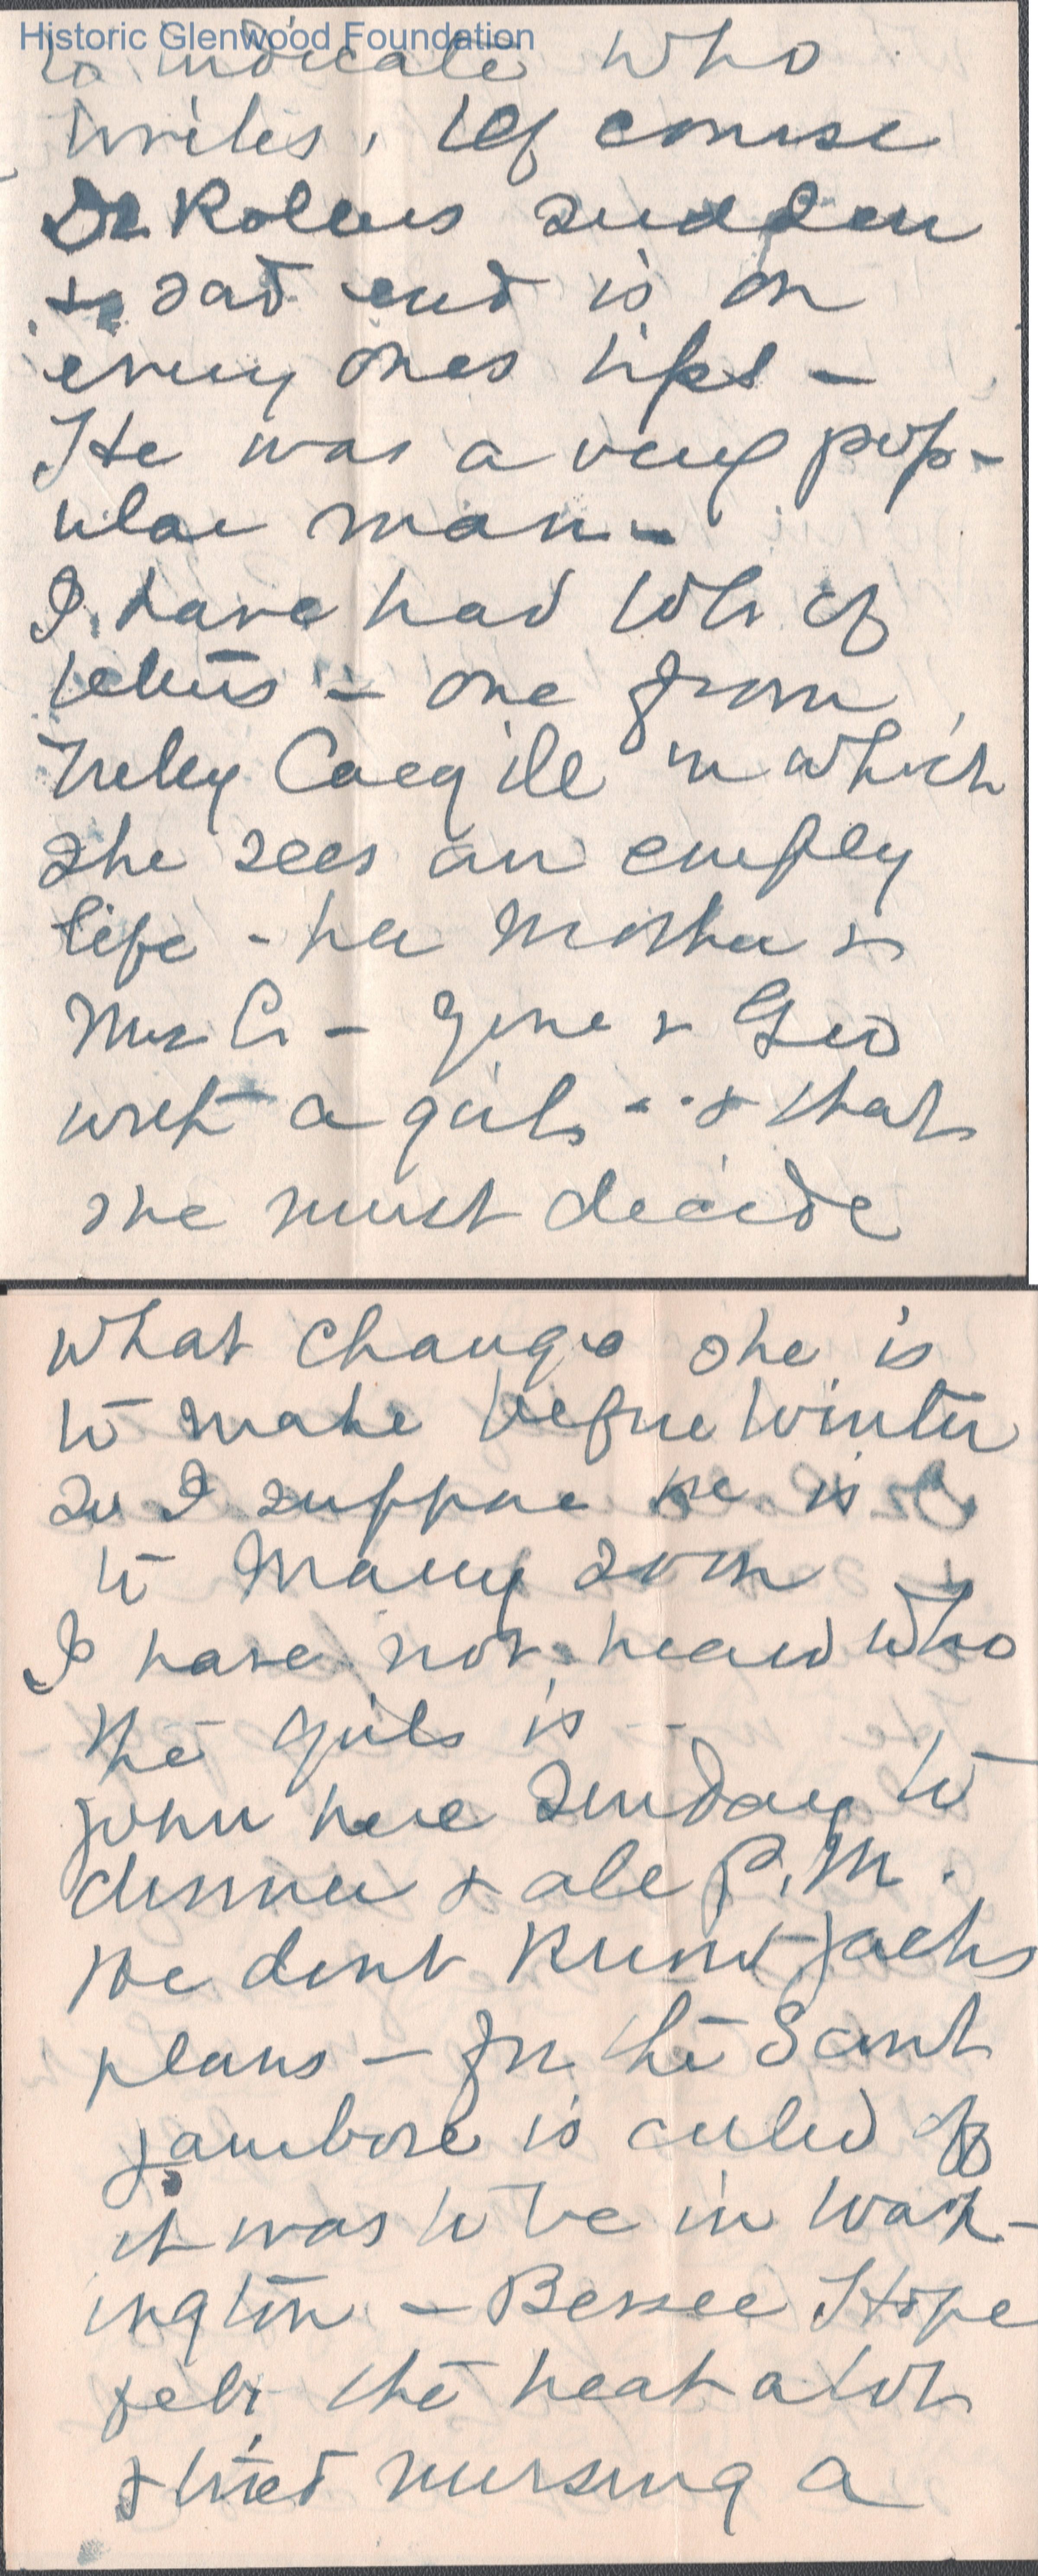 Historic Glenwood Foundation
to indicate who
writes. Of course
Dr Rollins sudden
& sad end is on
every ones lips –
He was a very pop-
ular man –
I have had lots of
letters – one from
Cargile in which
she sees an empty
life - her Mother &
Mr C – gone & Geo
with a girl - & that
she must decide
what change she is
to make before winter
so I suppose he is
to marry soon
I have not heard who
the girl is –
John here Sunday to
dinner & all P.M.
We dont know Jacks
plans – for the Scout
jambore is called off
it was to be in Wash-
ington – Bessee Hope
felt the heat a lot
& tried nursing a